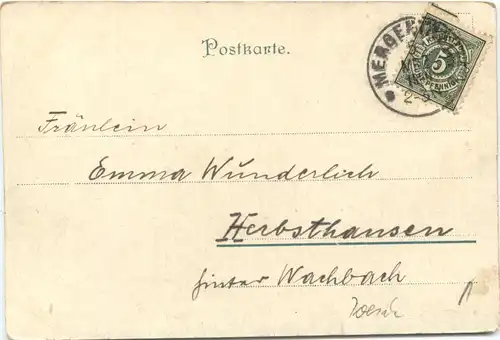 Postkarte.
MERGENTH
5
2-3
Fräulein
Emma Wunderlich
Herbsthausen
hinter Wachbach